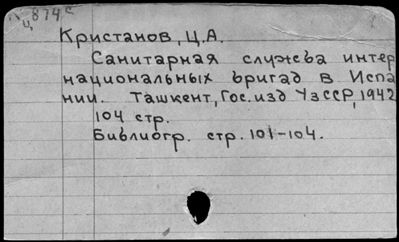 874
ц
Кристанов, Ц.А.
Санитарная служба интер
национальных бригад в Испа
нии. Ташкент, Гос.изд УзССР, 1942
104 стр.
Библиогр. стр. 101-104.